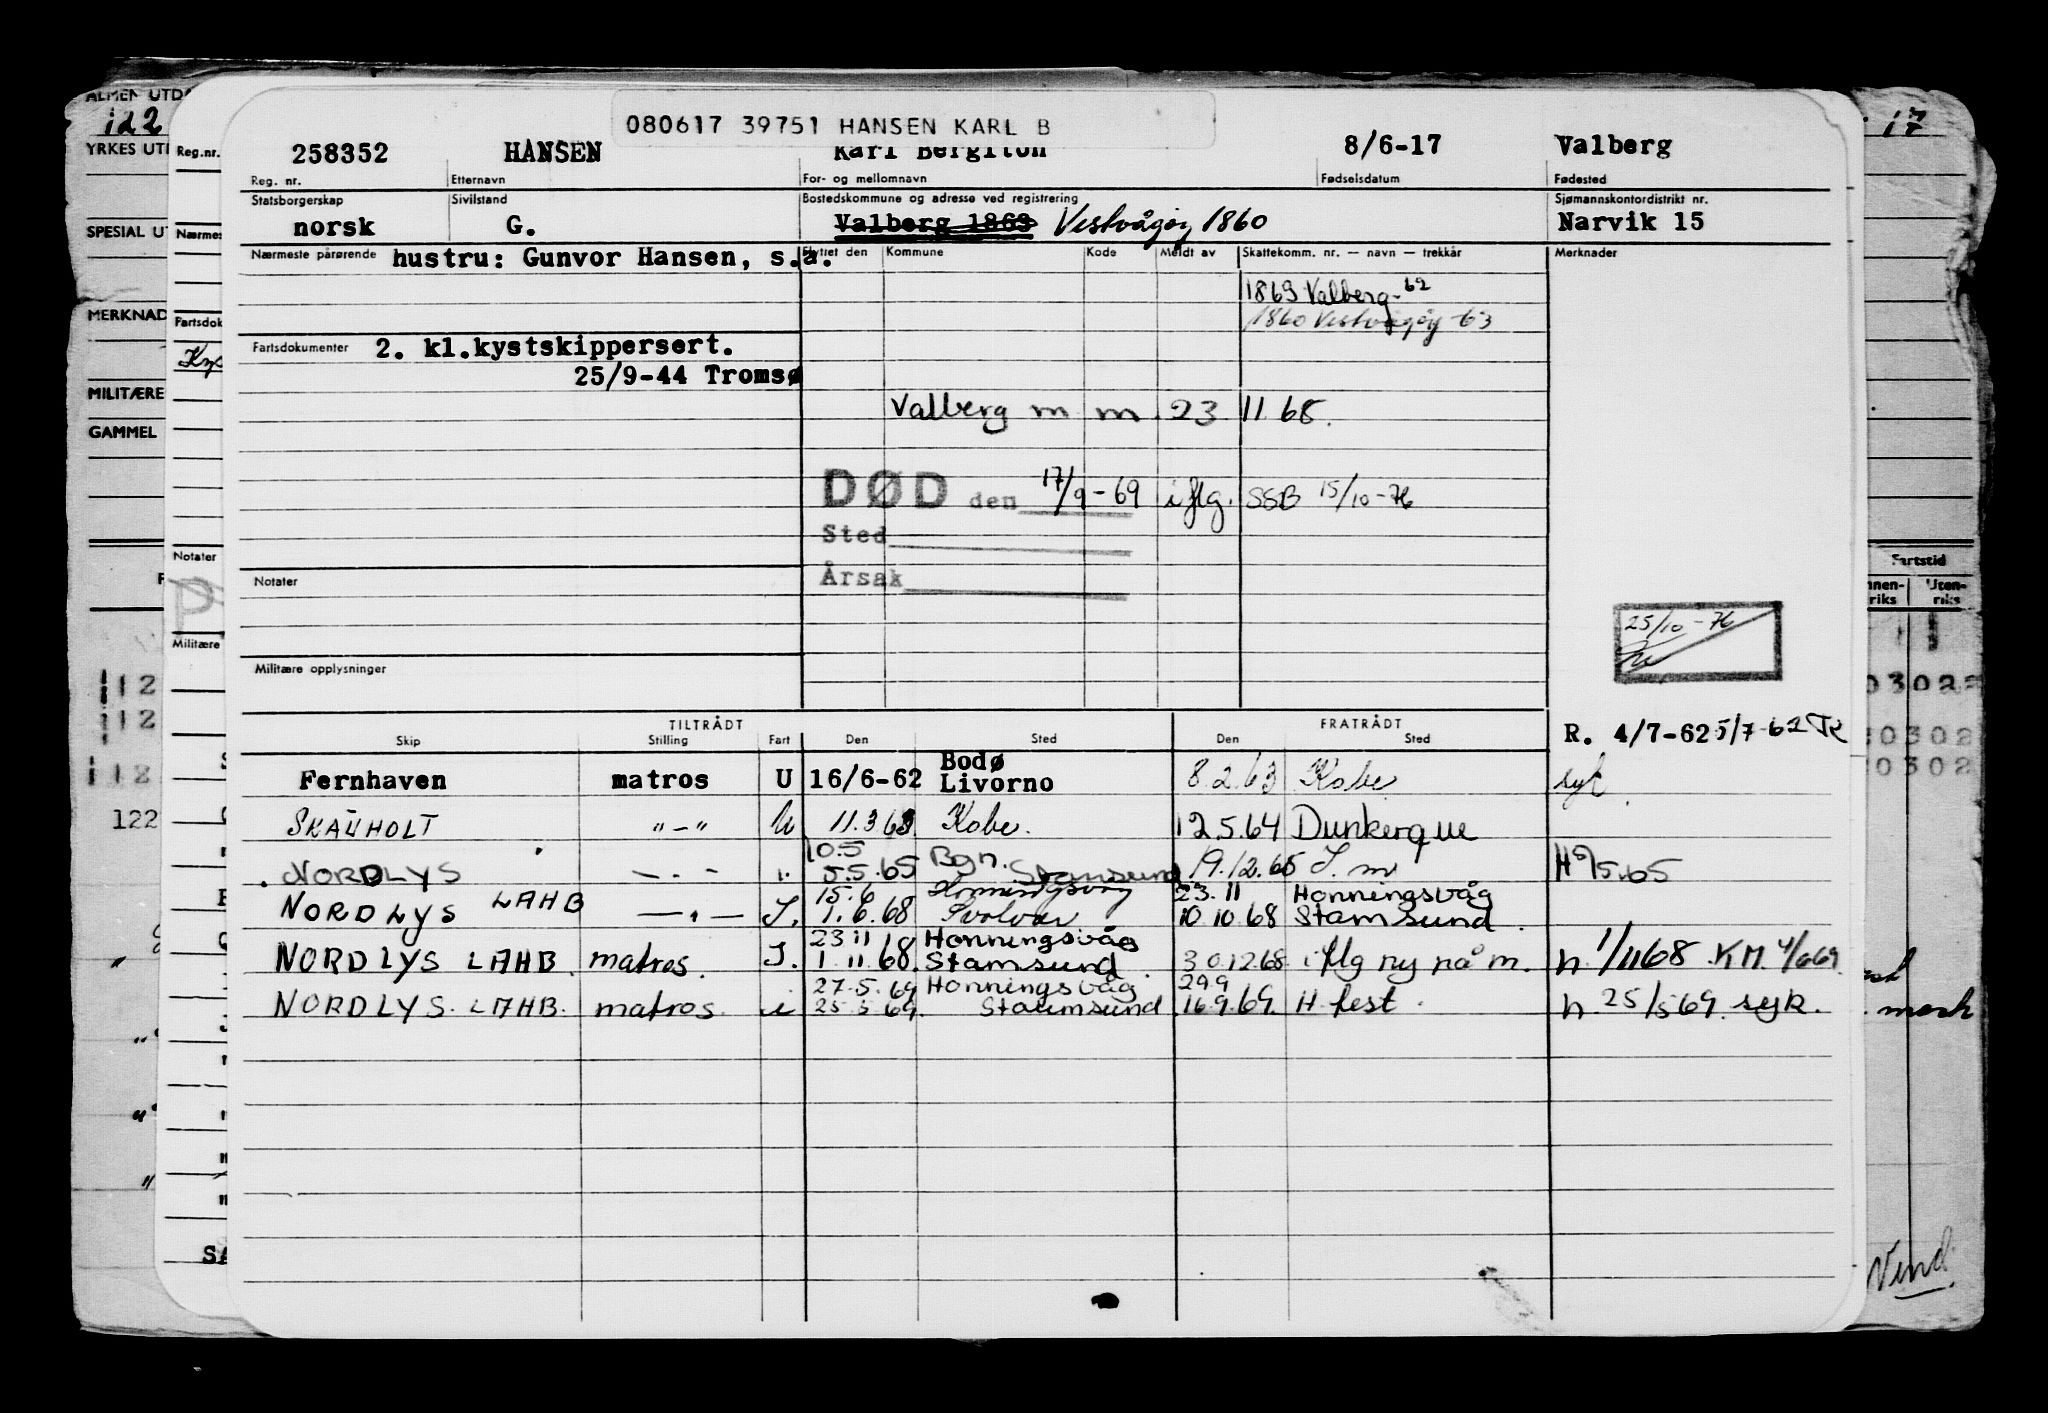 080617 39751 HANSEN KARL B
258352 HANSEN Karl Bergiton 8/6-17 Valberg
Reg. nr. Etternavn For- og mellomnavn Fødselsdatum Fødested
Statsborgerskap Sivilstand Bostedskommune og adresse ved registrering Sjømannskontordistrikt nr.
norsk G. Valberg 1869 Vestvågøy 1860 Narvik 15
Nærmeste pårørende hustru: Gunvor Hansen, s.a. Flyttet den Kommune Kode Meldt av Skattekomm. nr. — navn — trekkår Merknader
1869 Valberg-62
1860 Vestvågøy -63
Fartsdokumenter 2. kl.kystskippersert.
25/9-44 Tromsø
Valberg m m 23 11 68.
DØD den 17/9-69 iflg. SSB 15/10-76
Sted
Årsak
Notater
25/10-76
Militære opplysninger
TILTRÅDT FRATRÅDT
Skip Stilling Fart Den Sted Den Sted
R. 4/7-62 5/7-62
Fernhaven matros U 16/6-62 Bodø Livorno 8.2.63 Kobe syk.
SKAUHOLT "-" U 11.3.63 Kobe. 12.5.64 Dunkerque
NORDLYS — . - i. 10.5 5.5.65 Bgn. Stamsund 19.12.65 S.m
NORDLYS LAHB — " — I. 15.6 1.6.68 Honningsvåg Svolvær 23.11 10.10.68 Honningsvåg Stamsund.
NORDLYS LAHB. matros. I. 23 11 1.11.68. Honningsvåg Stamsund. 30.12.68. iflg ny på m. n. 1/1168 KM 4/669.
NORDLYS. LAHB. matros. i 27.5.69 25.5.69. Honningsvåg Stamsund 29.9 16.9.69. H.fest. n. 25/5 69. syk.
ALMEN UTDA
YRKES UTD
SPESIAL UT
MERKNAD
MILITÆRE
GAMMEL
Reg.nr.
Nærmes
Fartsdok
Notater
Militære
112
112
112
122
17
Fartstid
Innen-riks Uten-riks
mask
Vend.